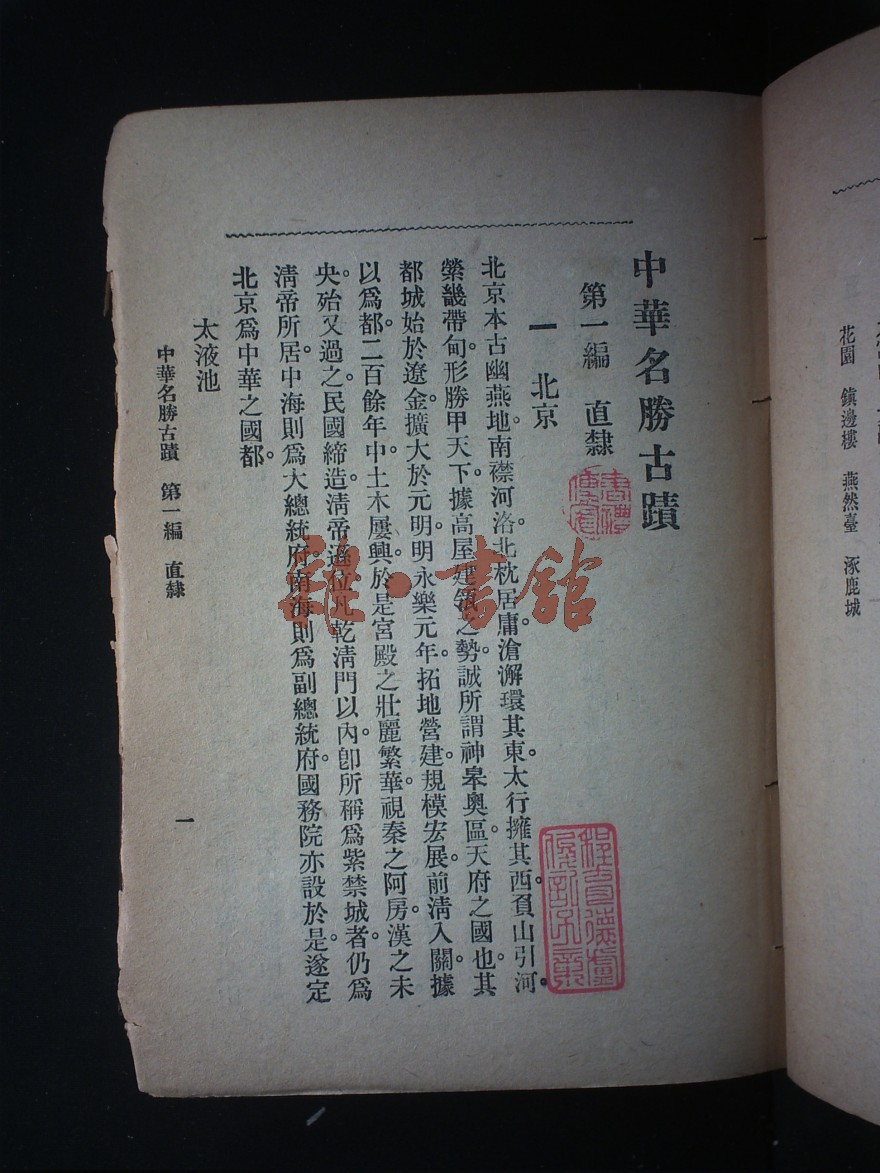 中華名勝古蹟
第一編　直隸
一　北京
北京本古幽燕地。南襟河洛。北枕居庸。滄澥環其東。太行擁其西。負山引河。
縈畿帶甸。形勝甲天下。據高屋建瓴之勢。誠所謂神皋奧區。天府之國也。其
都城始於遼金。擴大於元明。明永樂元年。拓地營建。規模宏展。前淸入關。據
以爲都。二百餘年中。土木屢興。於是宮殿之壯麗繁華。視秦之阿房。漢之未
央。殆又過之。民國締造。淸帝遜位。凡乾淸門以內。卽所稱爲紫禁城者。仍爲
淸帝所居。中海則爲大總統府。南海則爲副總統府。國務院亦設於是。遂定
北京爲中華之國都。
太液池
中華名勝古蹟　第一編　直隸
一
花園　鎭邊樓　燕然臺　涿鹿城
雜·書館